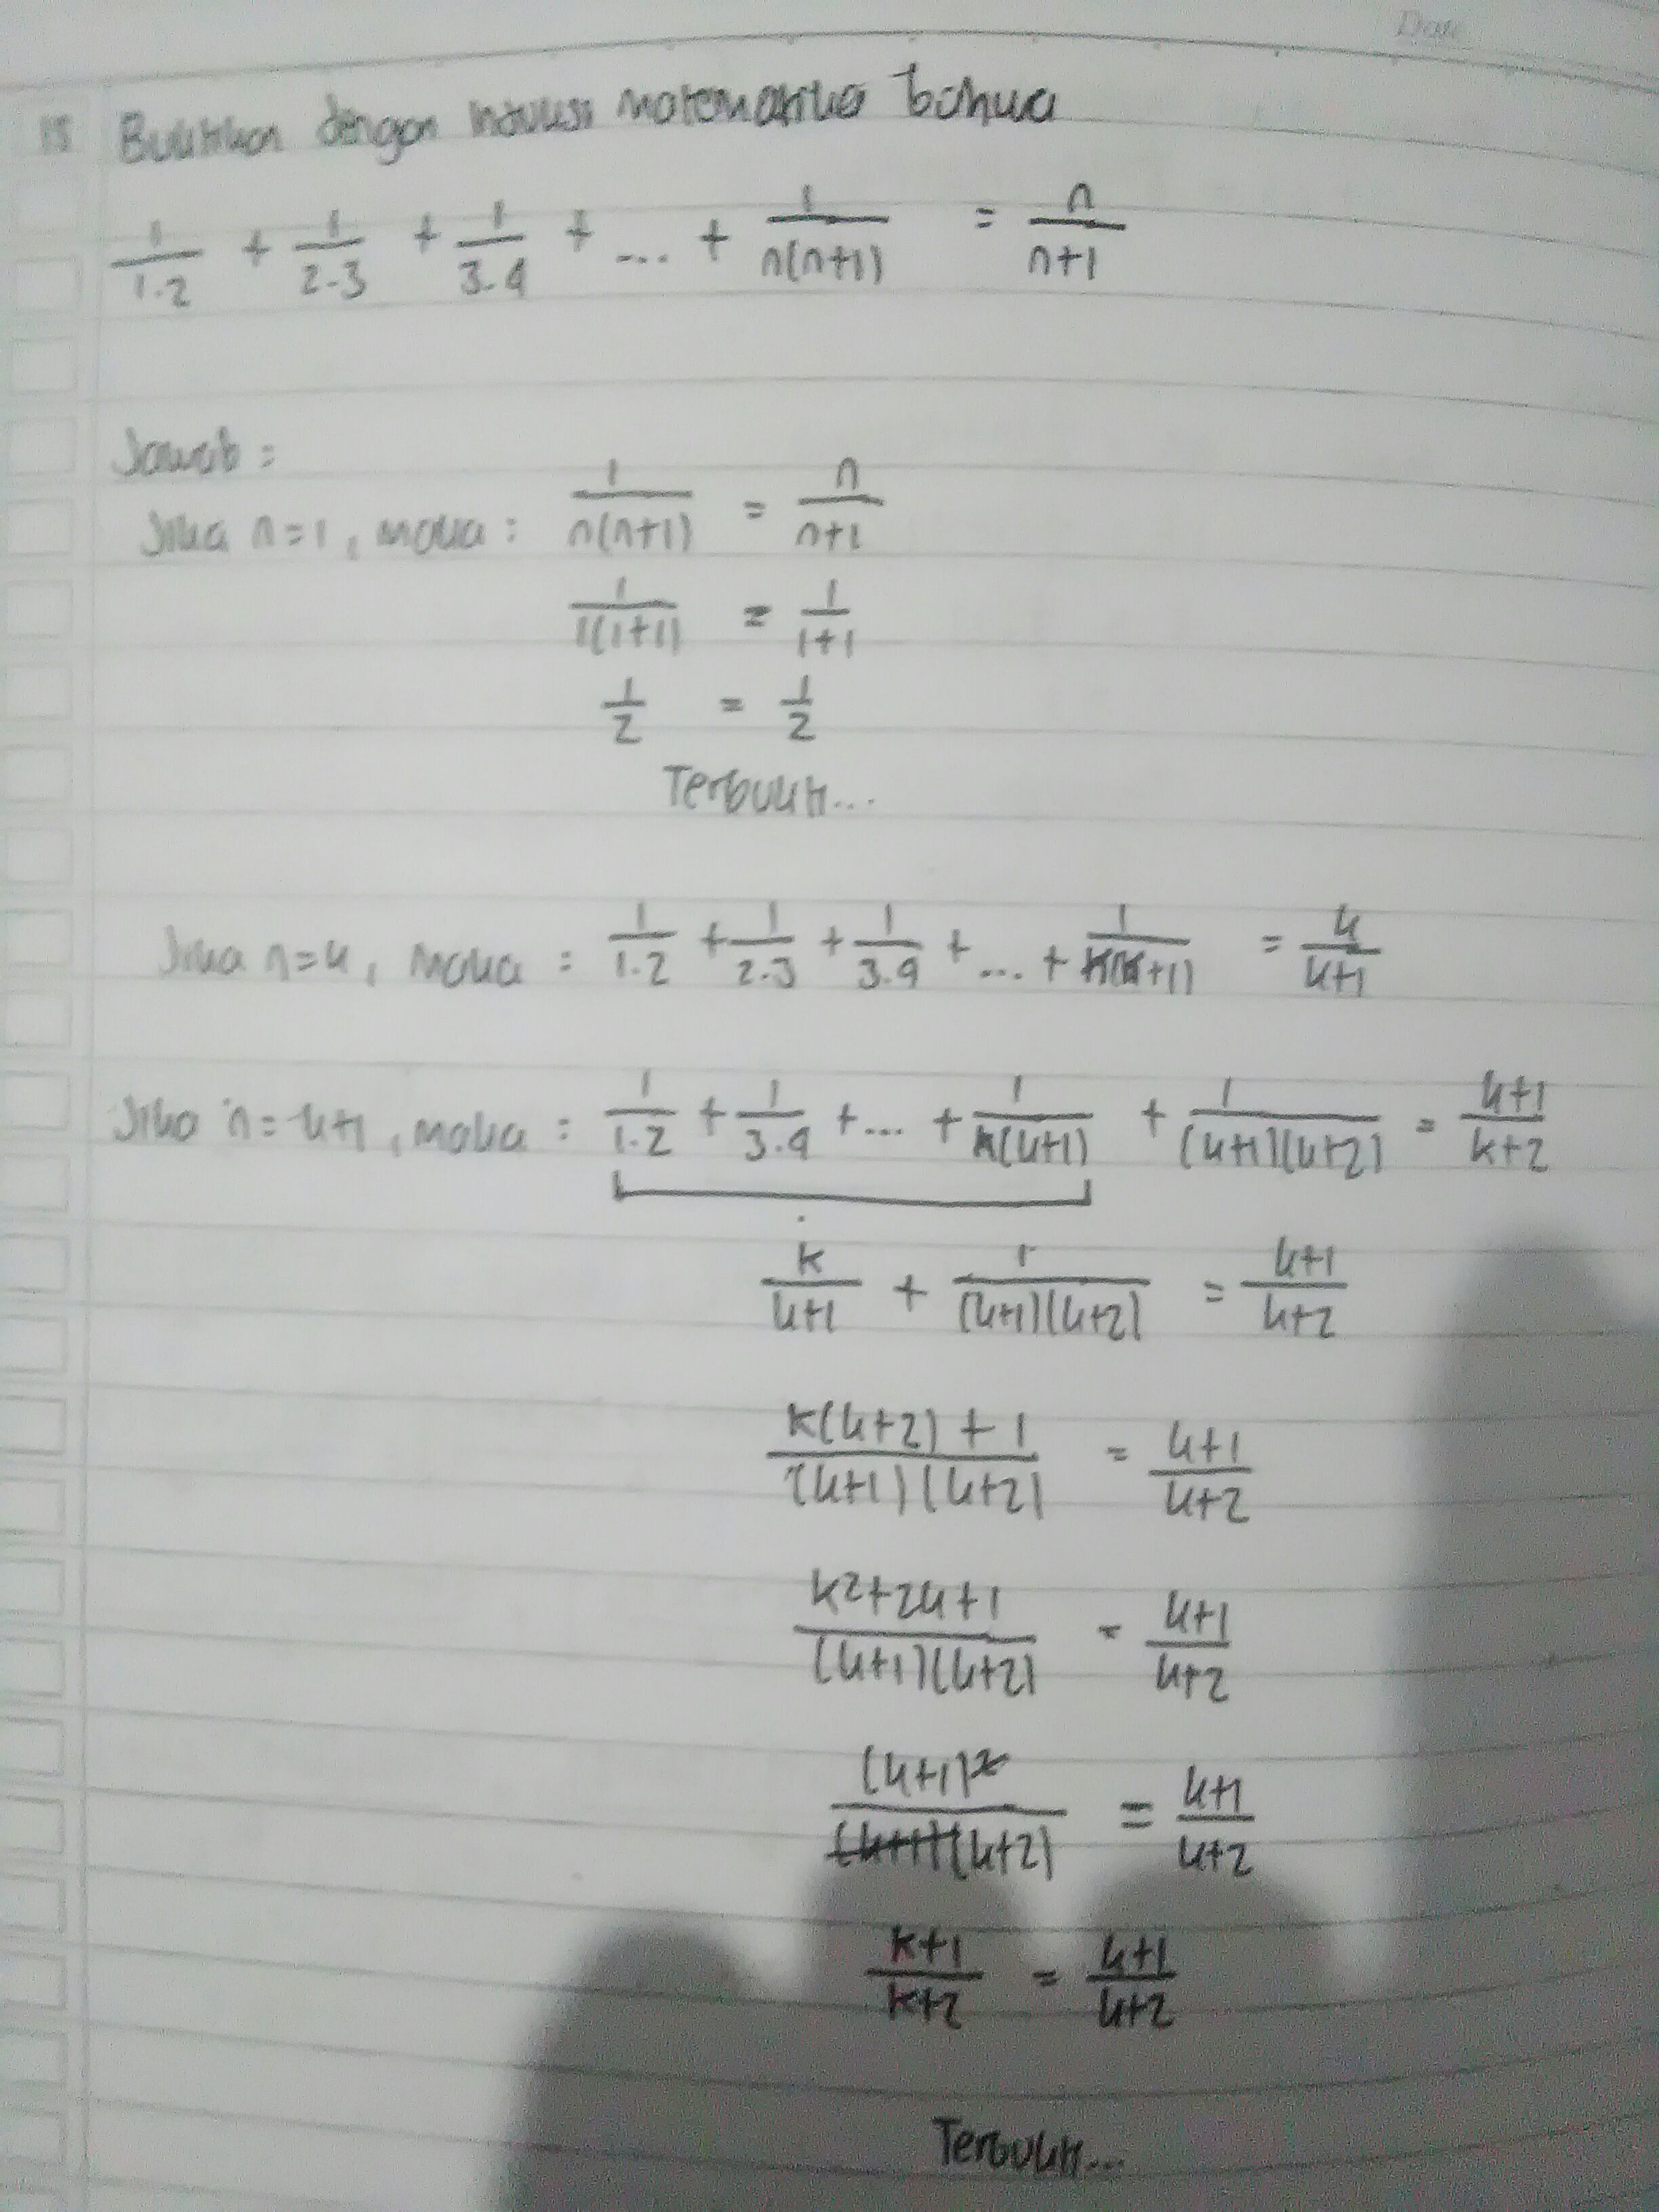 Date
15 Buktikan dengan induksi matematika bahwa
1/1.2 + 1/2.3 + 1/3.4 + ... + 1/n(n+1) = n/n+1
Jawab :
Jika n=1, maka : 1/n(n+1) = n/n+1
1/1(1+1) = 1/1+1
1/2 = 1/2
Terbukti...
Jika n=k, maka : 1/1.2 + 1/2.3 + 1/3.4 + ... + 1/k(k+1) = k/k+1
Jika n=k+1, maka : 1/1.2 + 1/3.4 + ... + 1/k(k+1) + 1/(k+1)(k+2) = k+1/k+2
k/k+1 + 1/(k+1)(k+2) = k+1/k+2
k(k+2)+1/(k+1)(k+2) = k+1/k+2
k²+2k+1/(k+1)(k+2) = k+1/k+2
(k+1)²/(k+1)(k+2) = k+1/k+2
k+1/k+2 = k+1/k+2
Terbukti...